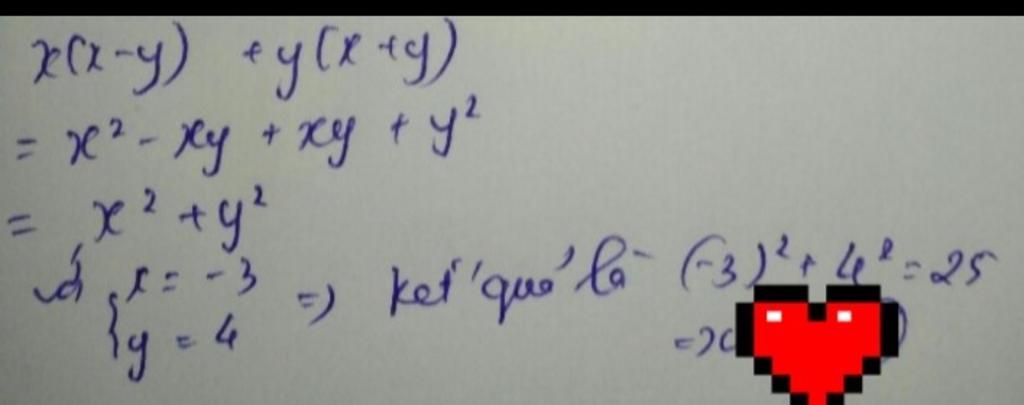 x(x-y) + y(x+y)
= x² - xy + xy + y²
= x² + y²
với { x = -3 => kết quả là (-3)² + 4² = 25
y = 4